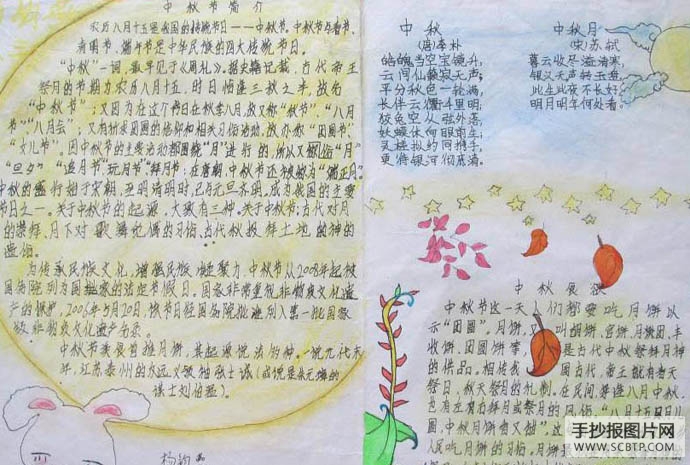 中秋节简介
农历八月十五是我国的传统节日——中秋节。中秋节与春节、
清明节、端午节是中华民族的四大传统节日。
"中秋"一词,最早见于《周礼》。据史籍记载,古代帝王
祭月的节期为农历八月十五,时日恰逢三秋之半,故名
"中秋节";又因为在这个节日在秋季八月,故又称"秋节"、"八月
节""八月会";又有祈求团圆的信仰和相关习俗活动,故亦称"团圆节"、
"女儿节"。因中秋节的主要活动都围绕"月"进行的,所以又俗称"月
旦夕""追月节""玩月节""拜月节";在唐朝,中秋节还被称为"端正月"。
中秋的盛行始于宋朝,至明清时,已与元旦齐名,成为我国的主要
节日之一。关于中秋节的起源,大致有三种。关于中秋节,古代对月
的崇拜、月下对歌舞记偶的习俗,古代秋报拜土地的神的
遗俗。
为传承民族文化,增强民族凝聚力,中秋节从2008年起被
国务院列为国家的法定节假日。国家非常重视非物质文化遗
产的保护,2006年5月20日,该节日经国务院批准列入第一批国家
级非物质文化遗产名录。
中秋
(唐)李朴
皓魄当空宝镜升,
云间仙籁寂无声;
平分秋色一轮满,
长伴云衢千里明;
狡兔空从弦外落,
妖蟆休向眼前生;
灵槎拟约同携手,
更待银河彻底清。
中秋月
(宋)苏轼
暮云收尽溢清寒,
银汉无声转玉盘,
此生此夜不长好,
明月明年何处看。
中秋节这一天人们都要吃月饼以
示"团圆"。月饼,又叫胡饼、宫饼、月团、丰
收饼、团圆饼等,是古代中秋祭拜月神
的供品。
手抄报图片网
WWW.SCBTP.COM